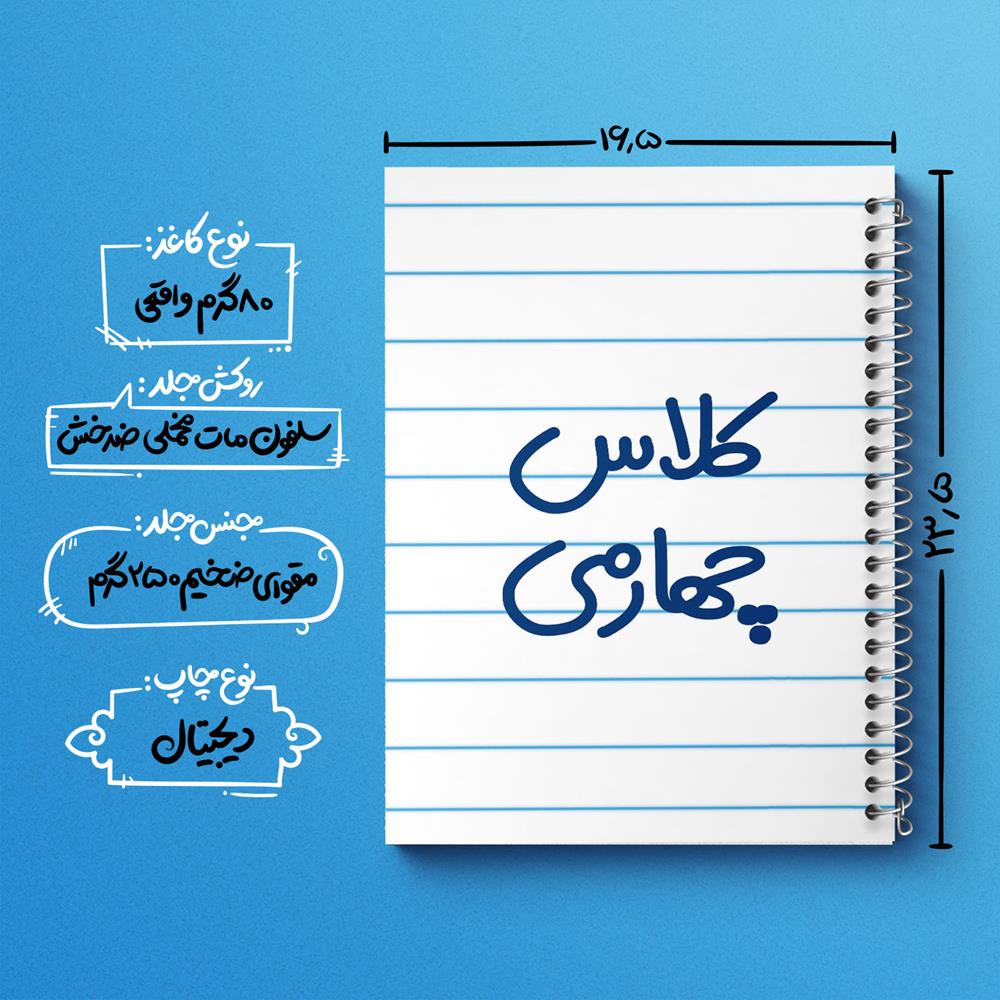 ۱۶٫۵
۲۳٫۵
نوع کاغذ:
۸۰گرم واقعی
روکش جلد:
سلفون مات مخملی ضدخش
جنس جلد:
مقوای ضخیم ۲۵۰گرم
نوع چاپ:
دیجیتال
کلاس
چهارمی